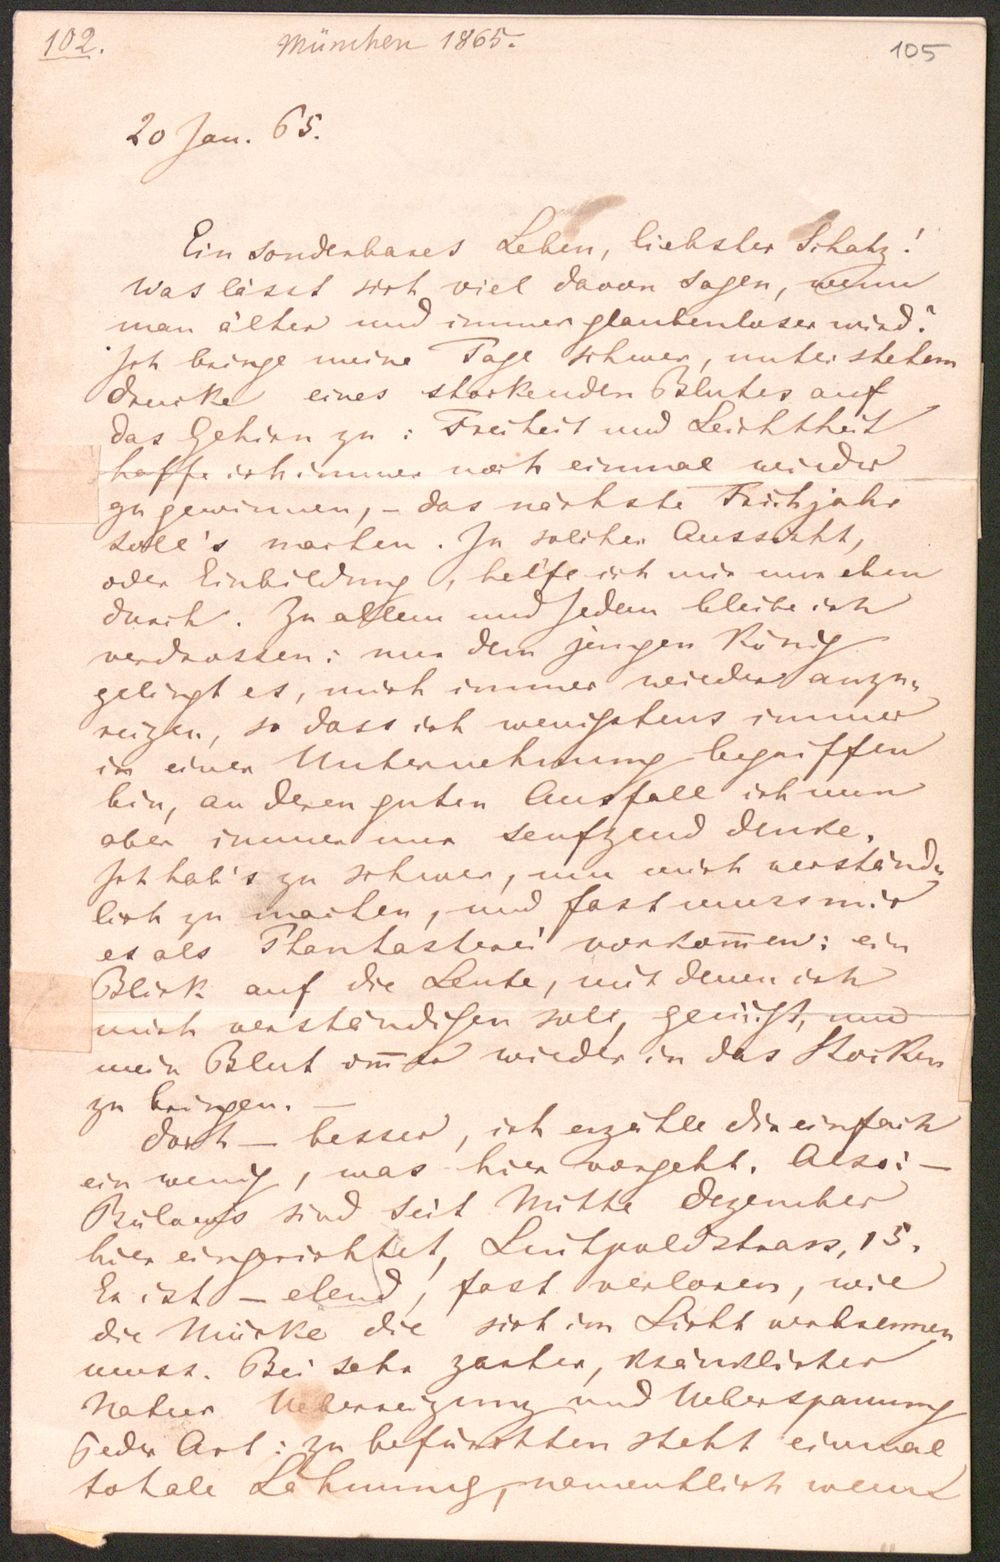 102.
München 1865.
105
20 Jan. 65.
Ein sonderbares Leben, liebster Schatz!
Was lässt sich viel davon sagen, wenn
man älter und immer glaubenloser wird?
Ich bringe meine Tage schwer, unter stetem
Drucke eines stockenden Blutes auf
das Gehirn zu: Freiheit und Leichtheit
hoffe ich immer noch einmal wieder
zu gewinnen, – das nächste Frühjahr
soll's machen. In solcher Aussicht,
oder Einbildung, helfe ich mir nun eben
durch. Zu allem und Jedem bleibe ich
verdrossen: nur dem jungen König
gelingt es, mich immer wieder anzu-
reizen, so dass ich wenigstens immer
in einer Unternehmung begriffen
bin, an deren guten Ausfall ich nun
aber immer nur seufzend denke.
Ich hab's zu schwer, um mich verständ-
lich zu machen, und fast muss mir
es als Phantasterei vorkom̅en: ein
Blick auf die Leute, mit denen ich
mich verständigen soll, genügt, um
mein Blut im̅er wieder in das Stocken
zu bringen. –
Doch – besser, ich erzähle dir einfach
ein wenig, was hier vorgeht. Also: –
Bülows sind seit Mitte Dezember
hier eingerichtet, Luitpoldstrass, 15.
Er ist – elend, fast verloren, wie
die Mücke die sich im Licht verbrennen
muss. Bei sehr zarter, kränklicher
Natur Ueberreizung und Ueberspannung
jeder Art: zu befürchten steht einmal
totale Lähmung, namentlich wenn